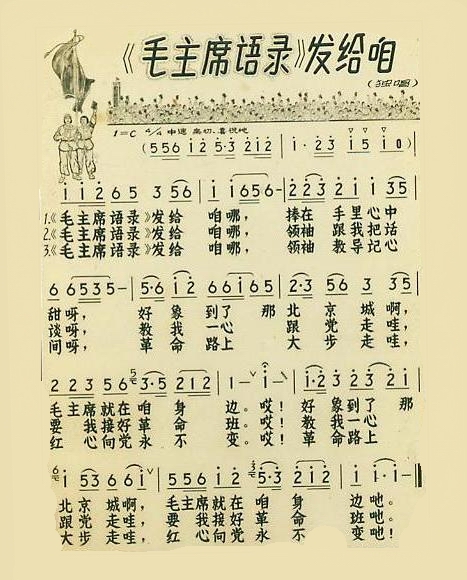 《毛主席语录》发给咱
(独唱)
1=C 4/4 中速 亲切、喜悦地
(5 5 6 i 2·3 2 1 2 | i · 2 3 i 5 i 0)
i i 2 6 5 3 5 6 | i i 6 5 6 - | 2 2 3 2 1 2 i 3 5
1.《毛主席语录》发给 咱哪, 捧在 手里心中
2.《毛主席语录》发给 咱哪, 领袖 跟我把话
3.《毛主席语录》发给 咱哪, 领袖 教导记心
6 6 5 3 5 - | 5·6 i 2 6 5 6 5 | 2·3 5 6 5 -
甜呀, 好象到了那 北京城啊,
谈呀, 教我一心 跟党走哇,
间呀, 革命路上 大步走哇,
5 5 2 2 3 5 6 3·5 2 1 2 | 1 - ∨ i - | i·2 3 2 3 2 i
毛主席就在咱身 边。哎! 好象到了那
要我接好革命 班。哎! 教我一心
红心向党永不 变。哎! 革命路上
i 5 3 6 6 1 i ∨ | 5 5 6 i 2 5·3 2 1 2 | i - i·i -
北京城啊, 毛主席就在咱身 边吔。
跟党走哇, 要我接好革命 班吔。
大步走哇, 红心向党永不 变吔!